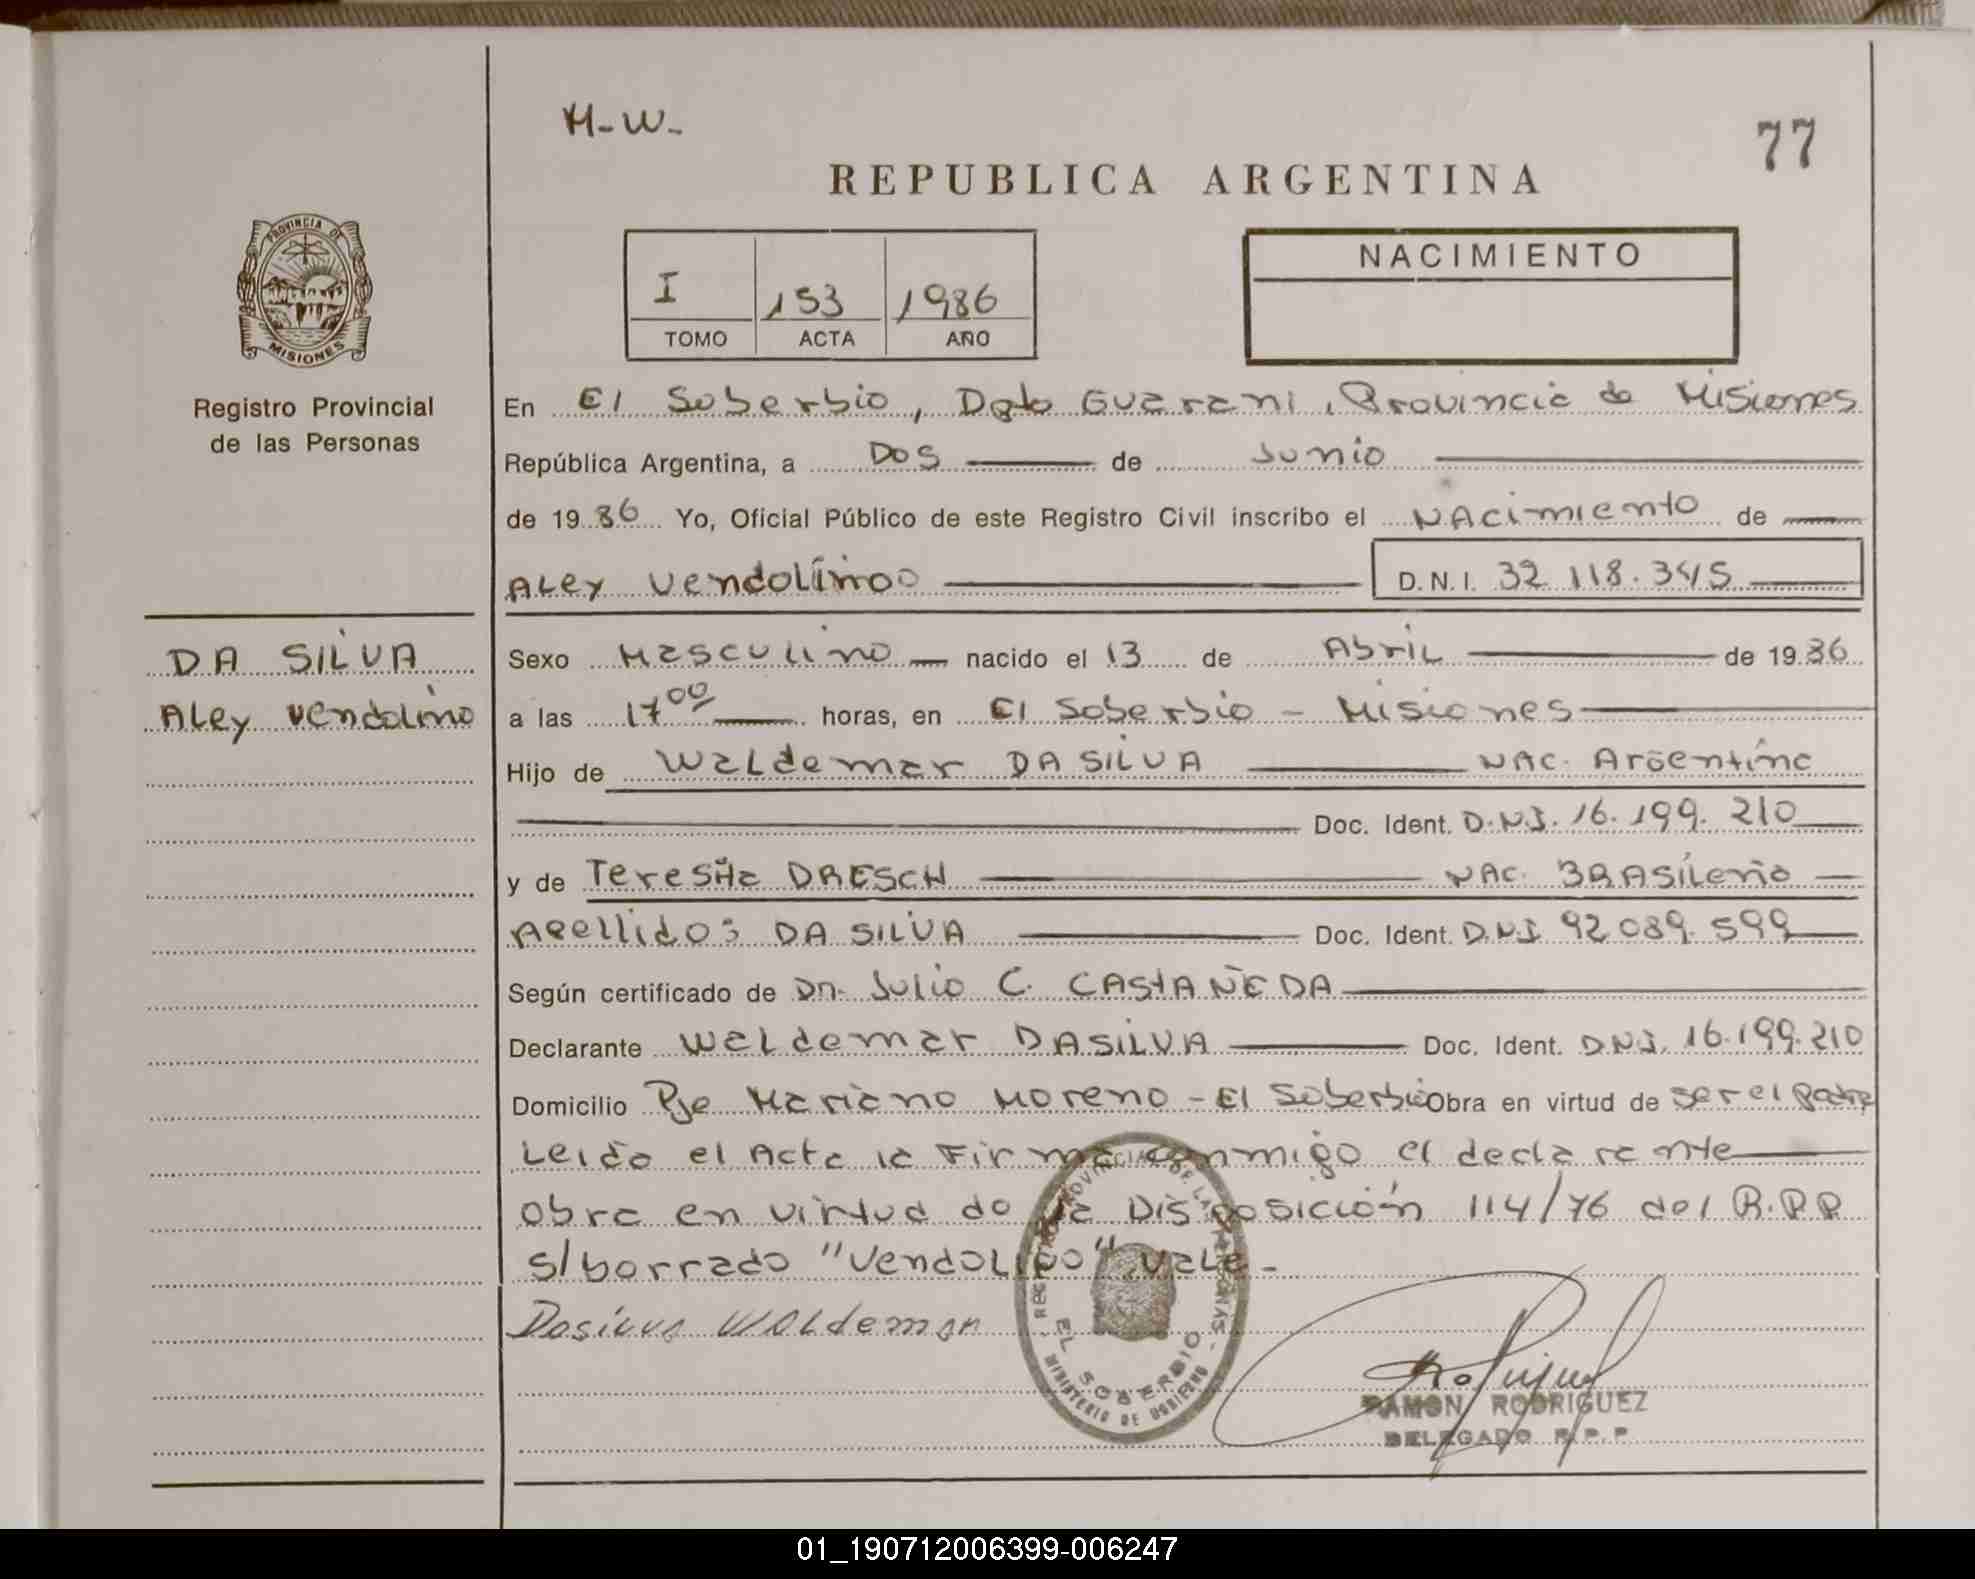 M-W-
77
REPUBLICA ARGENTINA
PROVINCIA DE
MISIONES
Registro Provincial
de las Personas
I 153 1986
TOMO ACTA AÑO
NACIMIENTO
En El Soberbio, Dpto Guarani, Provincia de Misiones
República Argentina, a Dos de Junio
de 1986 Yo, Oficial Público de este Registro Civil inscribo el Nacimiento de
Aley Vendolino D.N.I. 32.118.345
DA SILVA
Aley Vendolino
Sexo Masculino nacido el 13 de Abril de 1986
a las 17 00 horas, en El Soberbio - Misiones
Hijo de Waldemar DA SILVA Nac. Argentina
Doc. Ident. D.N.I. 16.199.210
y de Teresita DRESCH Nac. Brasileña
Apellido: DA SILVA Doc. Ident. D.N.I 92.089.599
Según certificado de Dn. Julio C. CASTAÑEDA
Declarante Waldemar DA SILVA Doc. Ident. D.N.I. 16.199.210
Domicilio Pje Mariano Moreno - El Soberbio Obra en virtud de ser el padre
Leido el Acta la Firma conmigo el declarante
obra en virtud de la Disposición 114/76 del R.P.P
s/borrado "Vendolino" vale-
Dasilva Waldemar
REGISTRO PROVINCIAL DE LAS PERSONAS
EL SOBERBIO
MINISTERIO DE GOBIERNO
RAMON RODRIGUEZ
DELEGADO R.P.P
01_190712006399-006247